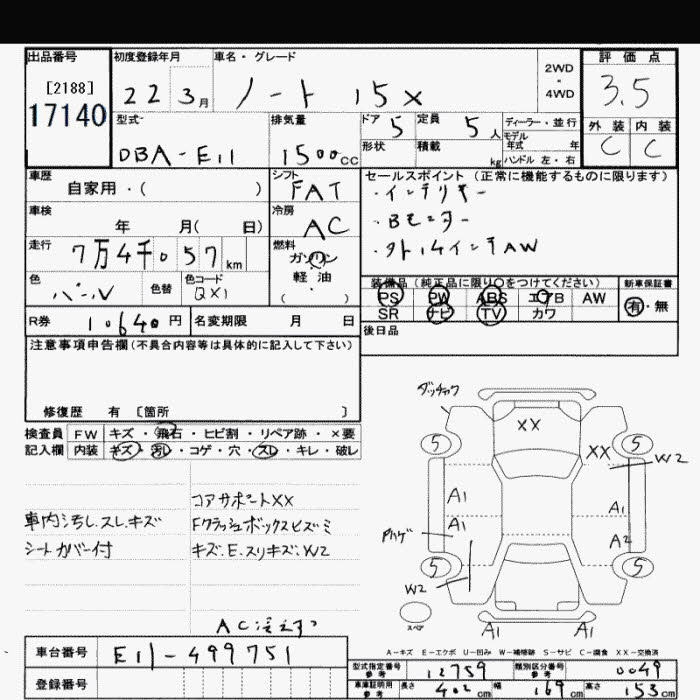 出品番号 初度登録年月 車名・グレード 2WD・4WD 評価点
[2188]
17140 22 3月 ノート 15X 3.5
型式 排気量 ドア 5 定員 5人 ディーラー・並行 外装 内装
DBA-E11 1500cc 形状 積載 kg モデル年式 年 ハンドル 左・右 C C
車歴 シフト セールスポイント (正常に機能するものに限ります)
自家用・( ) FAT ・インテリキー
車検 冷房 ・Bモニター
年 月( 日) AC ・外14インチAW
走行 燃料
7万4千057km ガソリン 装備品 (純正品に限り○をつけてください) 新車保証書
色 色替 色コード 軽・油 PS PW ABS エアB AW 有・無
パール QX1 ( ) SR ナビ TV カワ
R券 10640円 名変期限 月 日 後日品
注意事項申告欄(不具合内容等は具体的に記入して下さい)
修復歴 有 [箇所 ]
検査員 FW キズ・飛石・ヒビ割・リペア跡・×要
記入欄 内装 キズ・汚レ・コゲ・穴・スレ・キレ・破レ
コアサポートXX
車内汚し.スレ.キズ
シートカバー付 キズ.E.スリキズ.W2
XX
5 XX 5
W2
A1 A1
A1 A2
5 5
W2
スペア A1 A1
A-キズ E-エクボ U-凹み W-補修跡 S-サビ C-腐食 XX-交換済
車台番号 E11-499751 型式指定番号 参考 12759 類別区分番号 参考 0049
登録番号 車庫証明用 参考 長さ 402cm 幅 169cm 高さ 153cm